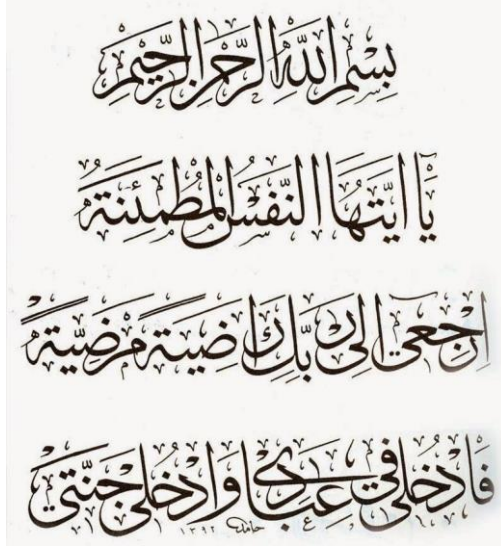 بِسْمِ اللّٰهِ الرَّحْمٰنِ الرَّحِيمِ
يَا اَيَّتُهَا النَّفْسُ الْمُطْمَئِنَّةُ
اِرْجِعِي اِلَى رَبِّكِ رَاضِيَةً مَرْضِيَّةً
فَادْخُلِي فِي عِبَادِي وَادْخُلِي جَنَّتِي
حامد ١٣٩٢